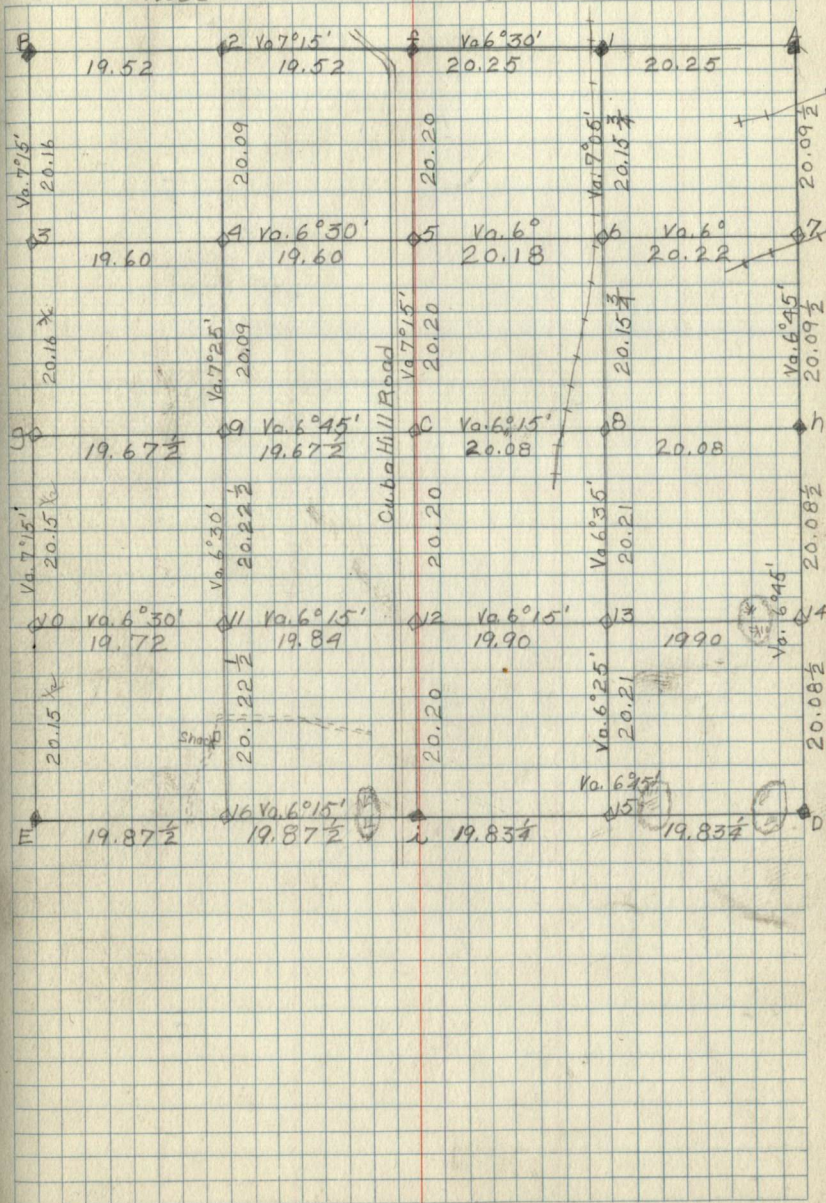 B 2 Va 7°15' Va 6°30' 1 A
19.52 19.52 20.25 20.25
Va. 7°15' 20.16 20.09 20.20 Va. 7°05' 20.15 3/4 20.09 1/2
3 4 Va. 6°30' 5 Va. 6° 6 Va. 6° 7
19.60 19.60 20.18 20.22
20.16 Va. 7°25' 20.09 Va 7°15' 20.20 20.15 3/4 Va. 6°45' 20.09 1/2
Cuba Hill Road
g 9 Va. 6°45' C Va. 6°15' 8 h
19.67 1/2 19.67 1/2 20.08 20.08
Va. 7°15' 20.15 1/2 Va. 6°30' 20.22 1/2 20.20 Va 6°35' 20.21 20.08 1/2
10 Va. 6°30' 11 Va. 6°15' 12 Va. 6°15' 13 14
19.72 19.84 19.90 1990
20.15 1/2 20. 22 1/2 20.20 Va. 6°25' 20.21 Va. 6°45' 20.08 1/2
Shack
Va. 6°15'
E 16 Va. 6°15' i 15 D
19.87 1/2 19.87 1/2 19.83 1/4 19.83 1/4